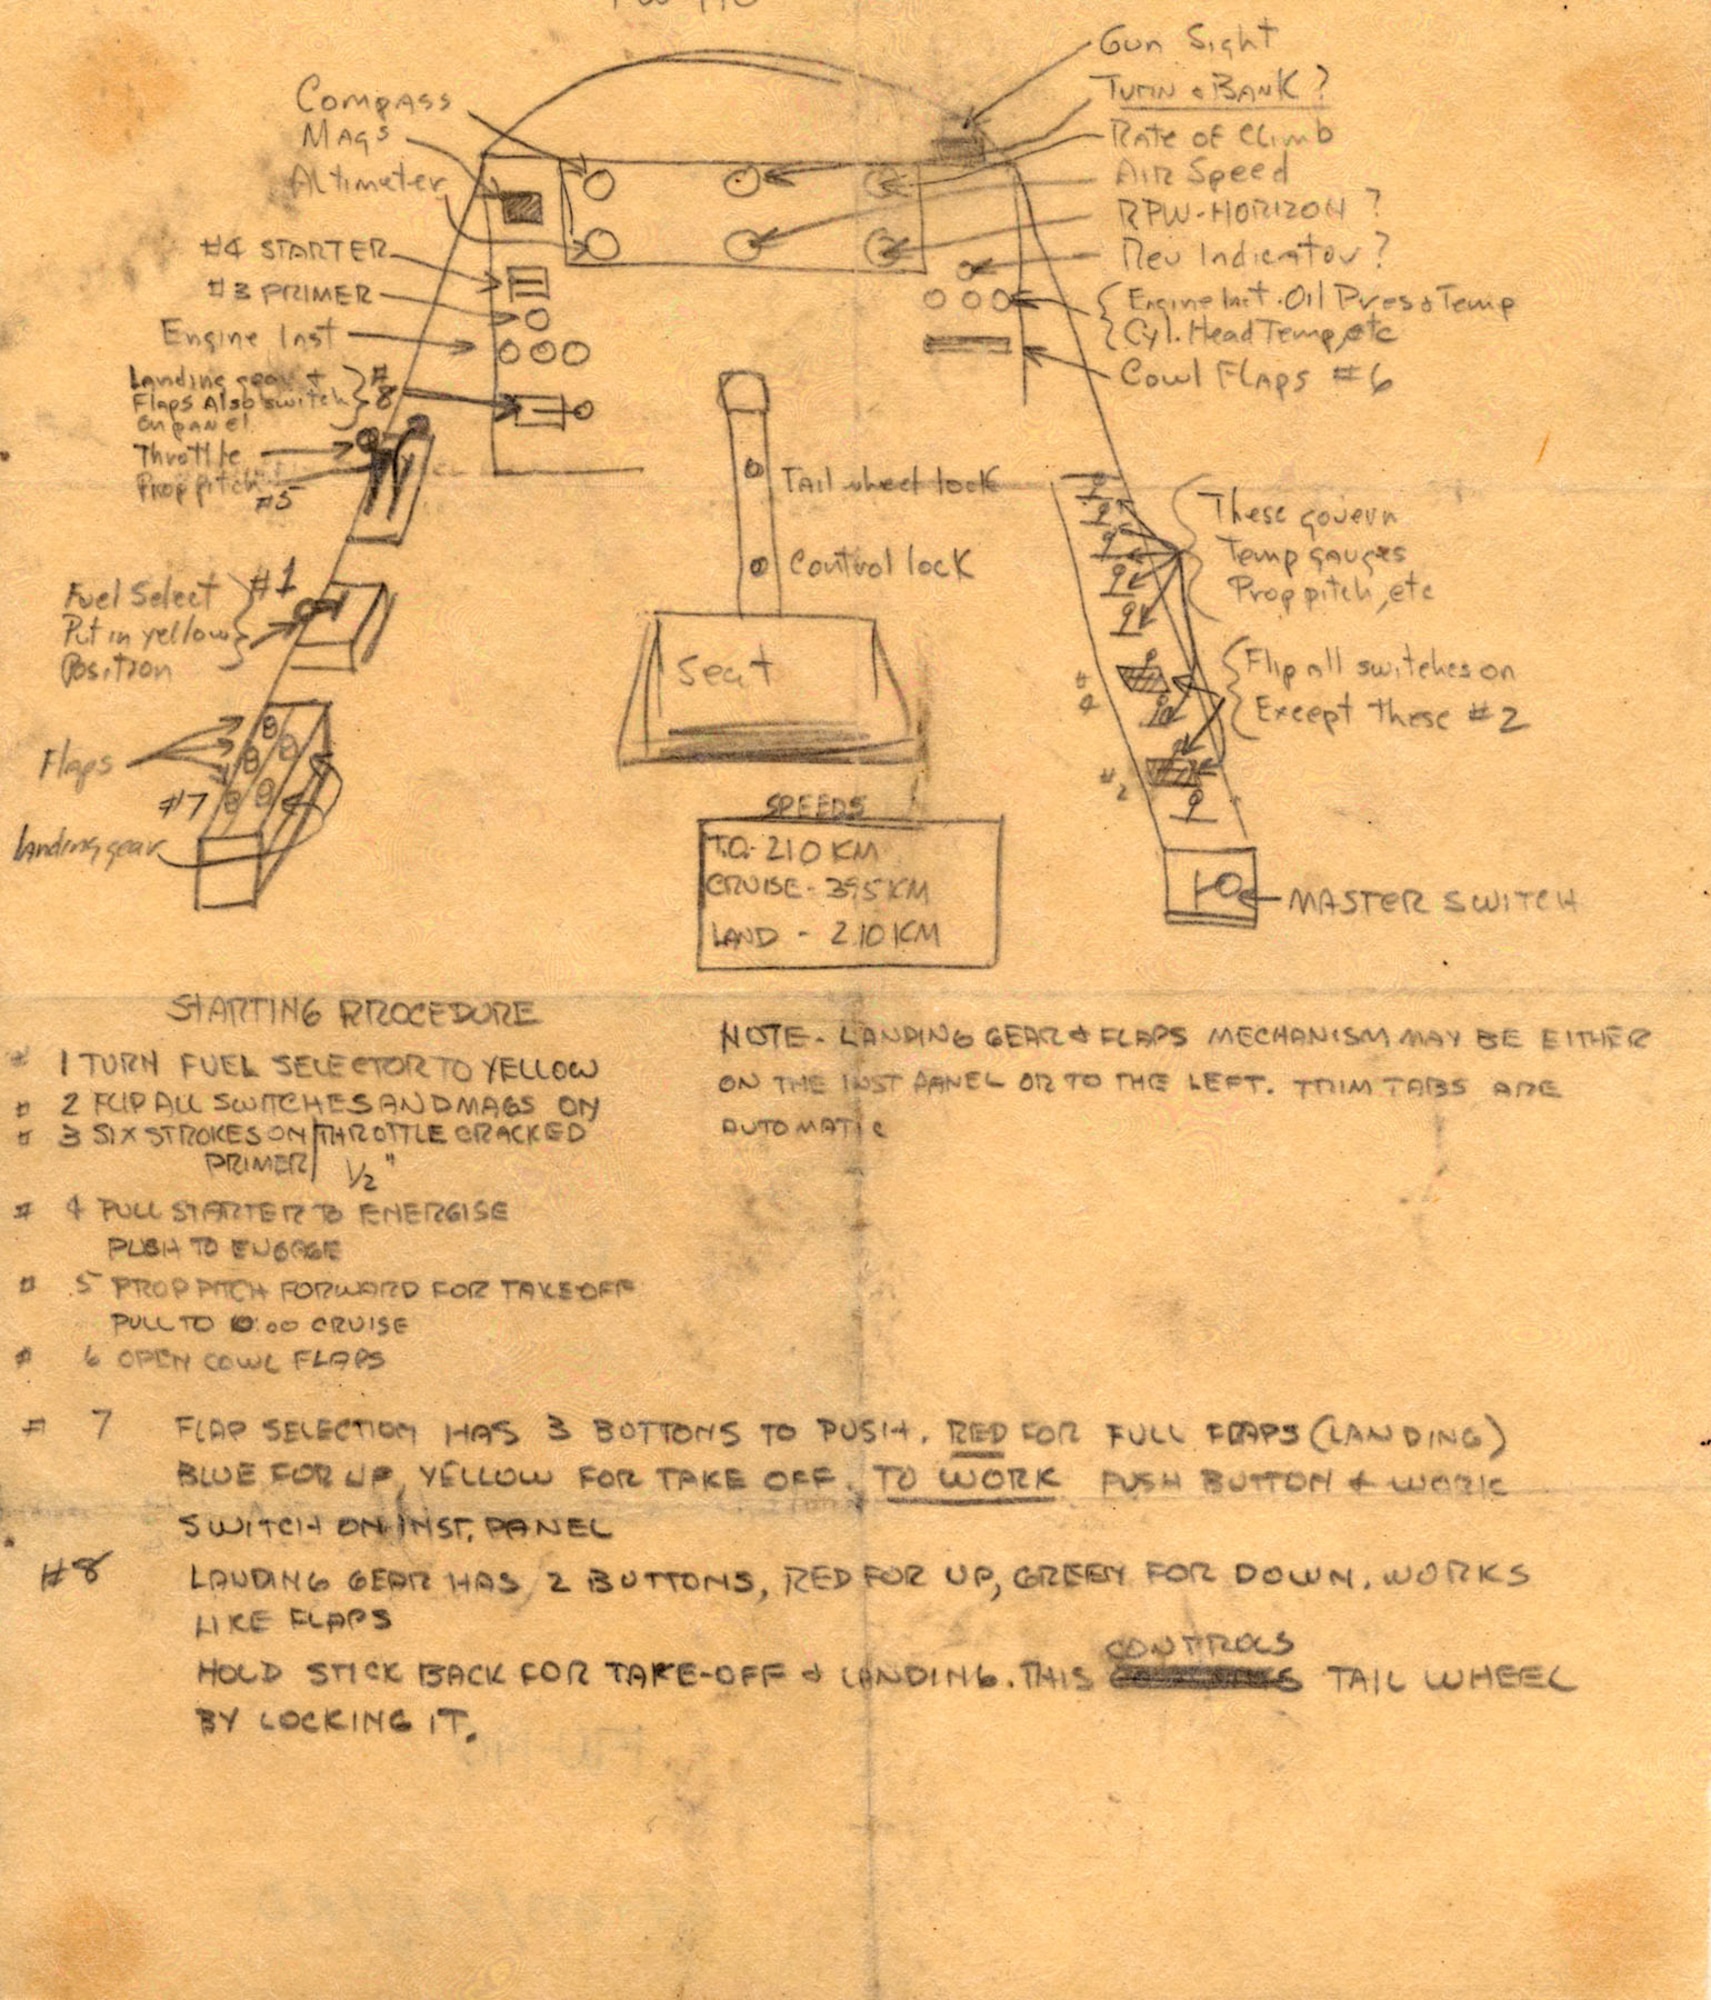 Gun Sight
Turn & Bank?
Rate of Climb
Air Speed
RPW-HORIZON ?
Rev Indicator?
Engine Inst. Oil Pres & Temp
Cyl. Head Temp, etc
Cowl Flaps #6
Compass
Mags
Altimeter
#4 STARTER
#3 PRIMER
Engine Inst
Landing gear +
Flaps Also switch
on panel
#8
Throttle
Prop pitch
#5
Tail wheel lock
Control lock
Seat
These govern
Temp gauges
Prop pitch, etc
Flip all switches on
Except These #2
#4
#2
Fuel Select
Put in yellow
Position
#1
Flaps
#7
landing gear
MASTER SWITCH
SPEEDS
T.O. 210 KM
CRUISE - 395 KM
LAND - 210 KM
STARTING PROCEDURE
# 1 TURN FUEL SELECTOR TO YELLOW
# 2 FLIP ALL SWITCHES AND MAGS ON
# 3 SIX STROKES ON PRIMER / THROTTLE CRACKED 1/2"
# 4 PULL STARTER TO ENERGISE
PUSH TO ENGAGE
# 5 PROP PITCH FORWARD FOR TAKE OFF
PULL TO :00 CRUISE
# 6 OPEN COWL FLAPS
NOTE - LANDING GEAR & FLAPS MECHANISM MAY BE EITHER
ON THE INST PANEL OR TO THE LEFT. TRIM TABS ARE
AUTOMATIC
# 7 FLAP SELECTION HAS 3 BUTTONS TO PUSH. RED FOR FULL FLAPS (LANDING)
BLUE FOR UP, YELLOW FOR TAKE OFF. TO WORK PUSH BUTTON & WORK
SWITCH ON INST. PANEL
#8 LANDING GEAR HAS 2 BUTTONS, RED FOR UP, GREEN FOR DOWN. WORKS
LIKE FLAPS
HOLD STICK BACK FOR TAKE-OFF & LANDING. THIS CONTROLS TAIL WHEEL
BY LOCKING IT.